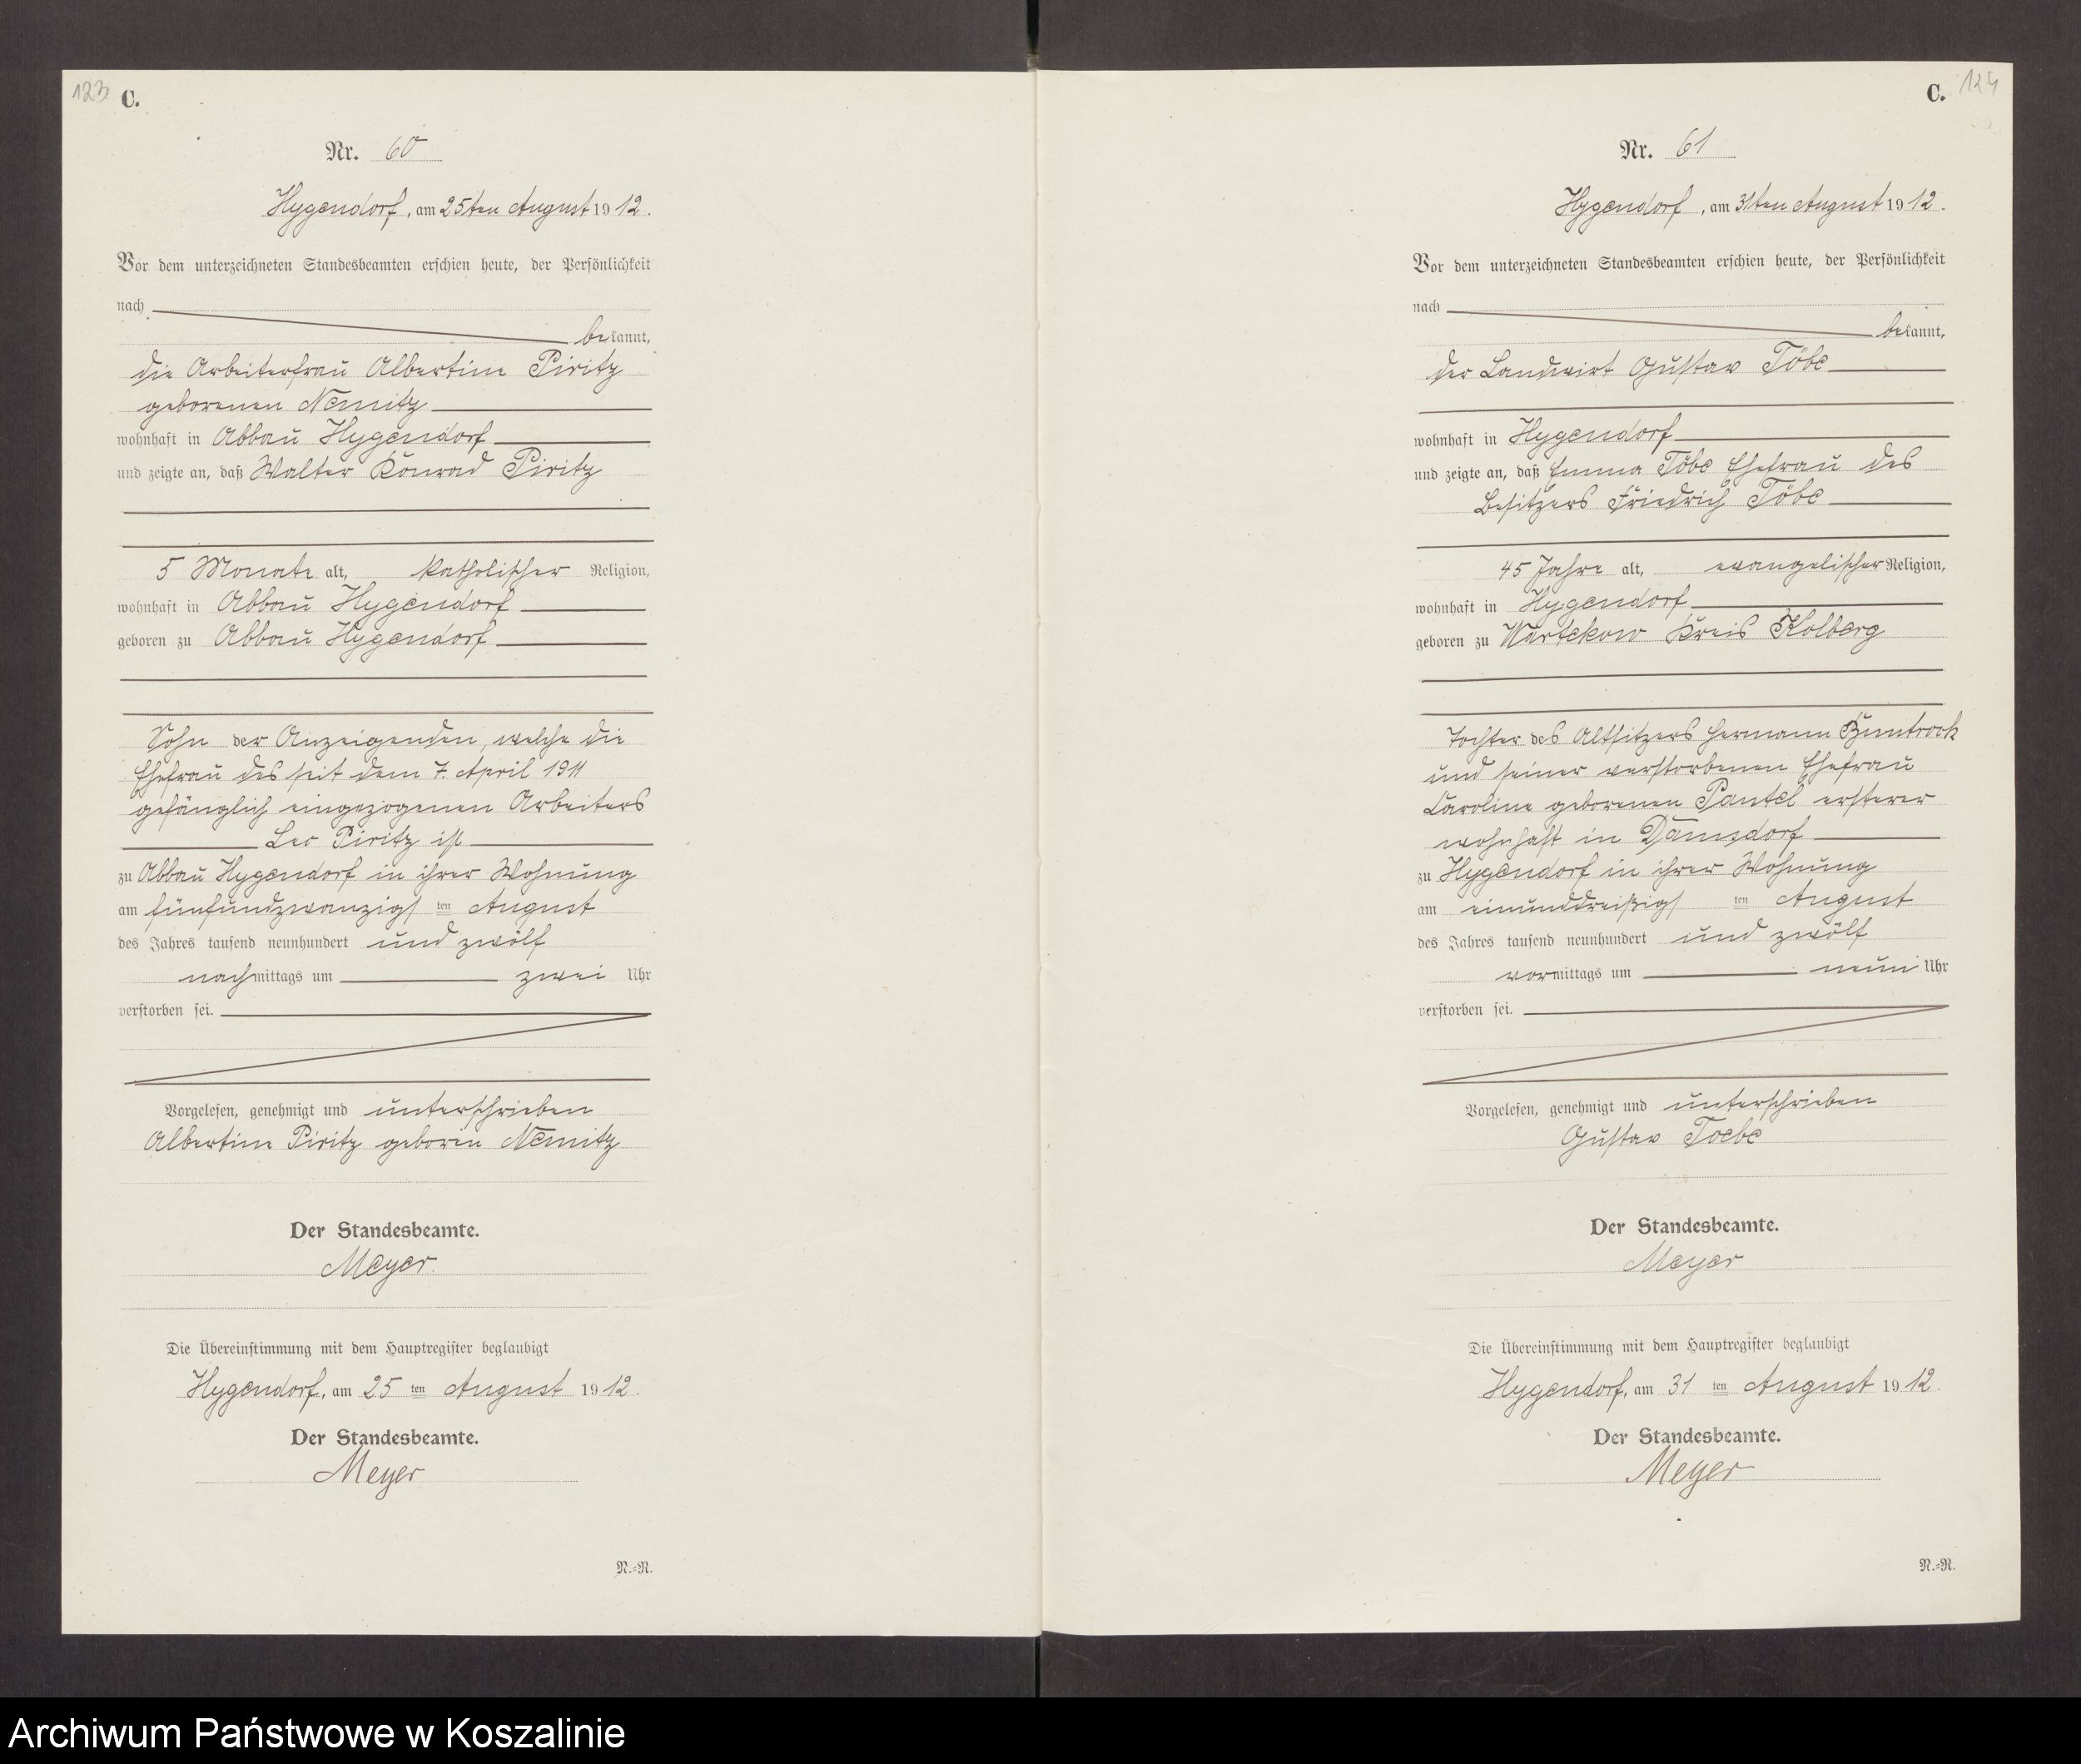 123 C.
Nr. 60
Hygendorf, am 25ten August 1912.
Vor dem unterzeichneten Standesbeamten erschien heute, der Persönlichkeit
nach
bekannt,
die Arbeiterfrau Albertine Piritz
geborenen Nemitz
wohnhaft in Abbau Hygendorf
und zeigte an, daß Walter Konrad Piritz
5 Monate alt, katholischer Religion,
wohnhaft in Abbau Hygendorf
geboren zu Abbau Hygendorf
Sohn der Anzeigenden, welche die
Ehefrau des seit dem 7. April 1911
gefänglich eingezogenen Arbeiters
Leo Piritz ist
zu Abbau Hygendorf in ihrer Wohnung
am fünfundzwanzigsten August
des Jahres tausend neunhundert und zwölf
nachmittags um zwei Uhr
verstorben sei.
Vorgelesen, genehmigt und unterschrieben
Albertine Piritz geboren Nemitz
Der Standesbeamte.
Meyer
Die Übereinstimmung mit dem Hauptregister beglaubigt
Hygendorf, am 25 ten August 1912.
Der Standesbeamte.
Meyer
N.=R.
C. 124
Nr. 61
Hygendorf, am 31ten August 1912.
Vor dem unterzeichneten Standesbeamten erschien heute, der Persönlichkeit
nach
bekannt,
der Landwirt Gustav Töbe
wohnhaft in Hygendorf
und zeigte an, daß Emma Töbe Ehefrau des
Besitzers Friedrich Töbe
45 Jahre alt, evangelischer Religion,
wohnhaft in Hygendorf
geboren zu Wartekow Kreis Kolberg
Tochter des Altsitzers Hermann Buntrock
und seiner verstorbenen Ehefrau
Caroline geborenen Pantel ersterer
wohnhaft in Damsdorf
zu Hygendorf in ihrer Wohnung
am einunddreißigsten August
des Jahres tausend neunhundert und zwölf
vormittags um neun Uhr
verstorben sei.
Vorgelesen, genehmigt und unterschrieben
Gustav Toebe
Der Standesbeamte.
Meyer
Die Übereinstimmung mit dem Hauptregister beglaubigt
Hygendorf, am 31 ten August 1912.
Der Standesbeamte.
Meyer
N.=R.
Archiwum Państwowe w Koszalinie